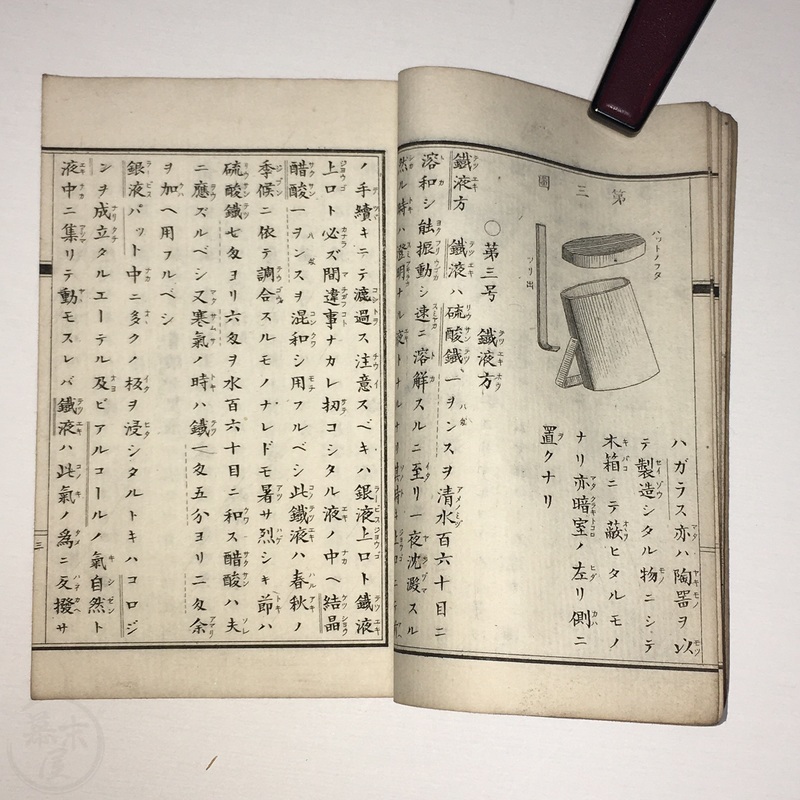 第三圖
バットノフタ
ツリ出
ハガラス亦ハ陶器ヲ以
テ製造シタル物ニシテ
木箱ニテ蔽ヒタルモノ
ナリ亦暗室ノ左リ側ニ
置クナリ
○第三号 鐵液方
鐵液方 鐵液ハ硫酸鐵一ヲンスヲ清水百六十目ニ
溶和シ能振動シ速ニ溶解スルニ至リ一夜沈澱スル
然ル時ハ澄明ナル液トナル
ノ手續キニテ漉過ス注意スベキハ銀液上ロト鐵液
上ロト必ズ間違事ナカレ扨コシタル液ノ中ヘ結晶
醋酸一ヲンスヲ混和シ用フルベシ此鐵液ハ春秋ノ
季候ニ依テ調合スルモノナレドモ暑サ烈シキ節ハ
硫酸鐵七匁ヨリ六匁ヲ水百六十目ニ和ス醋酸ハ夫
ニ應ズルベシ又寒氣ノ時ハ鐵一匁五分ヨリ二匁余
ヲ加ヘ用フルベシ
銀液バット中ニ多クノ板ヲ浸シタルトキハコロジ
ンヲ成立タルエーテル及ビアルコールノ氣自然ト
液中ニ集リテ動モスレバ鐵液ハ此氣ノ為ニ反撥サ
三